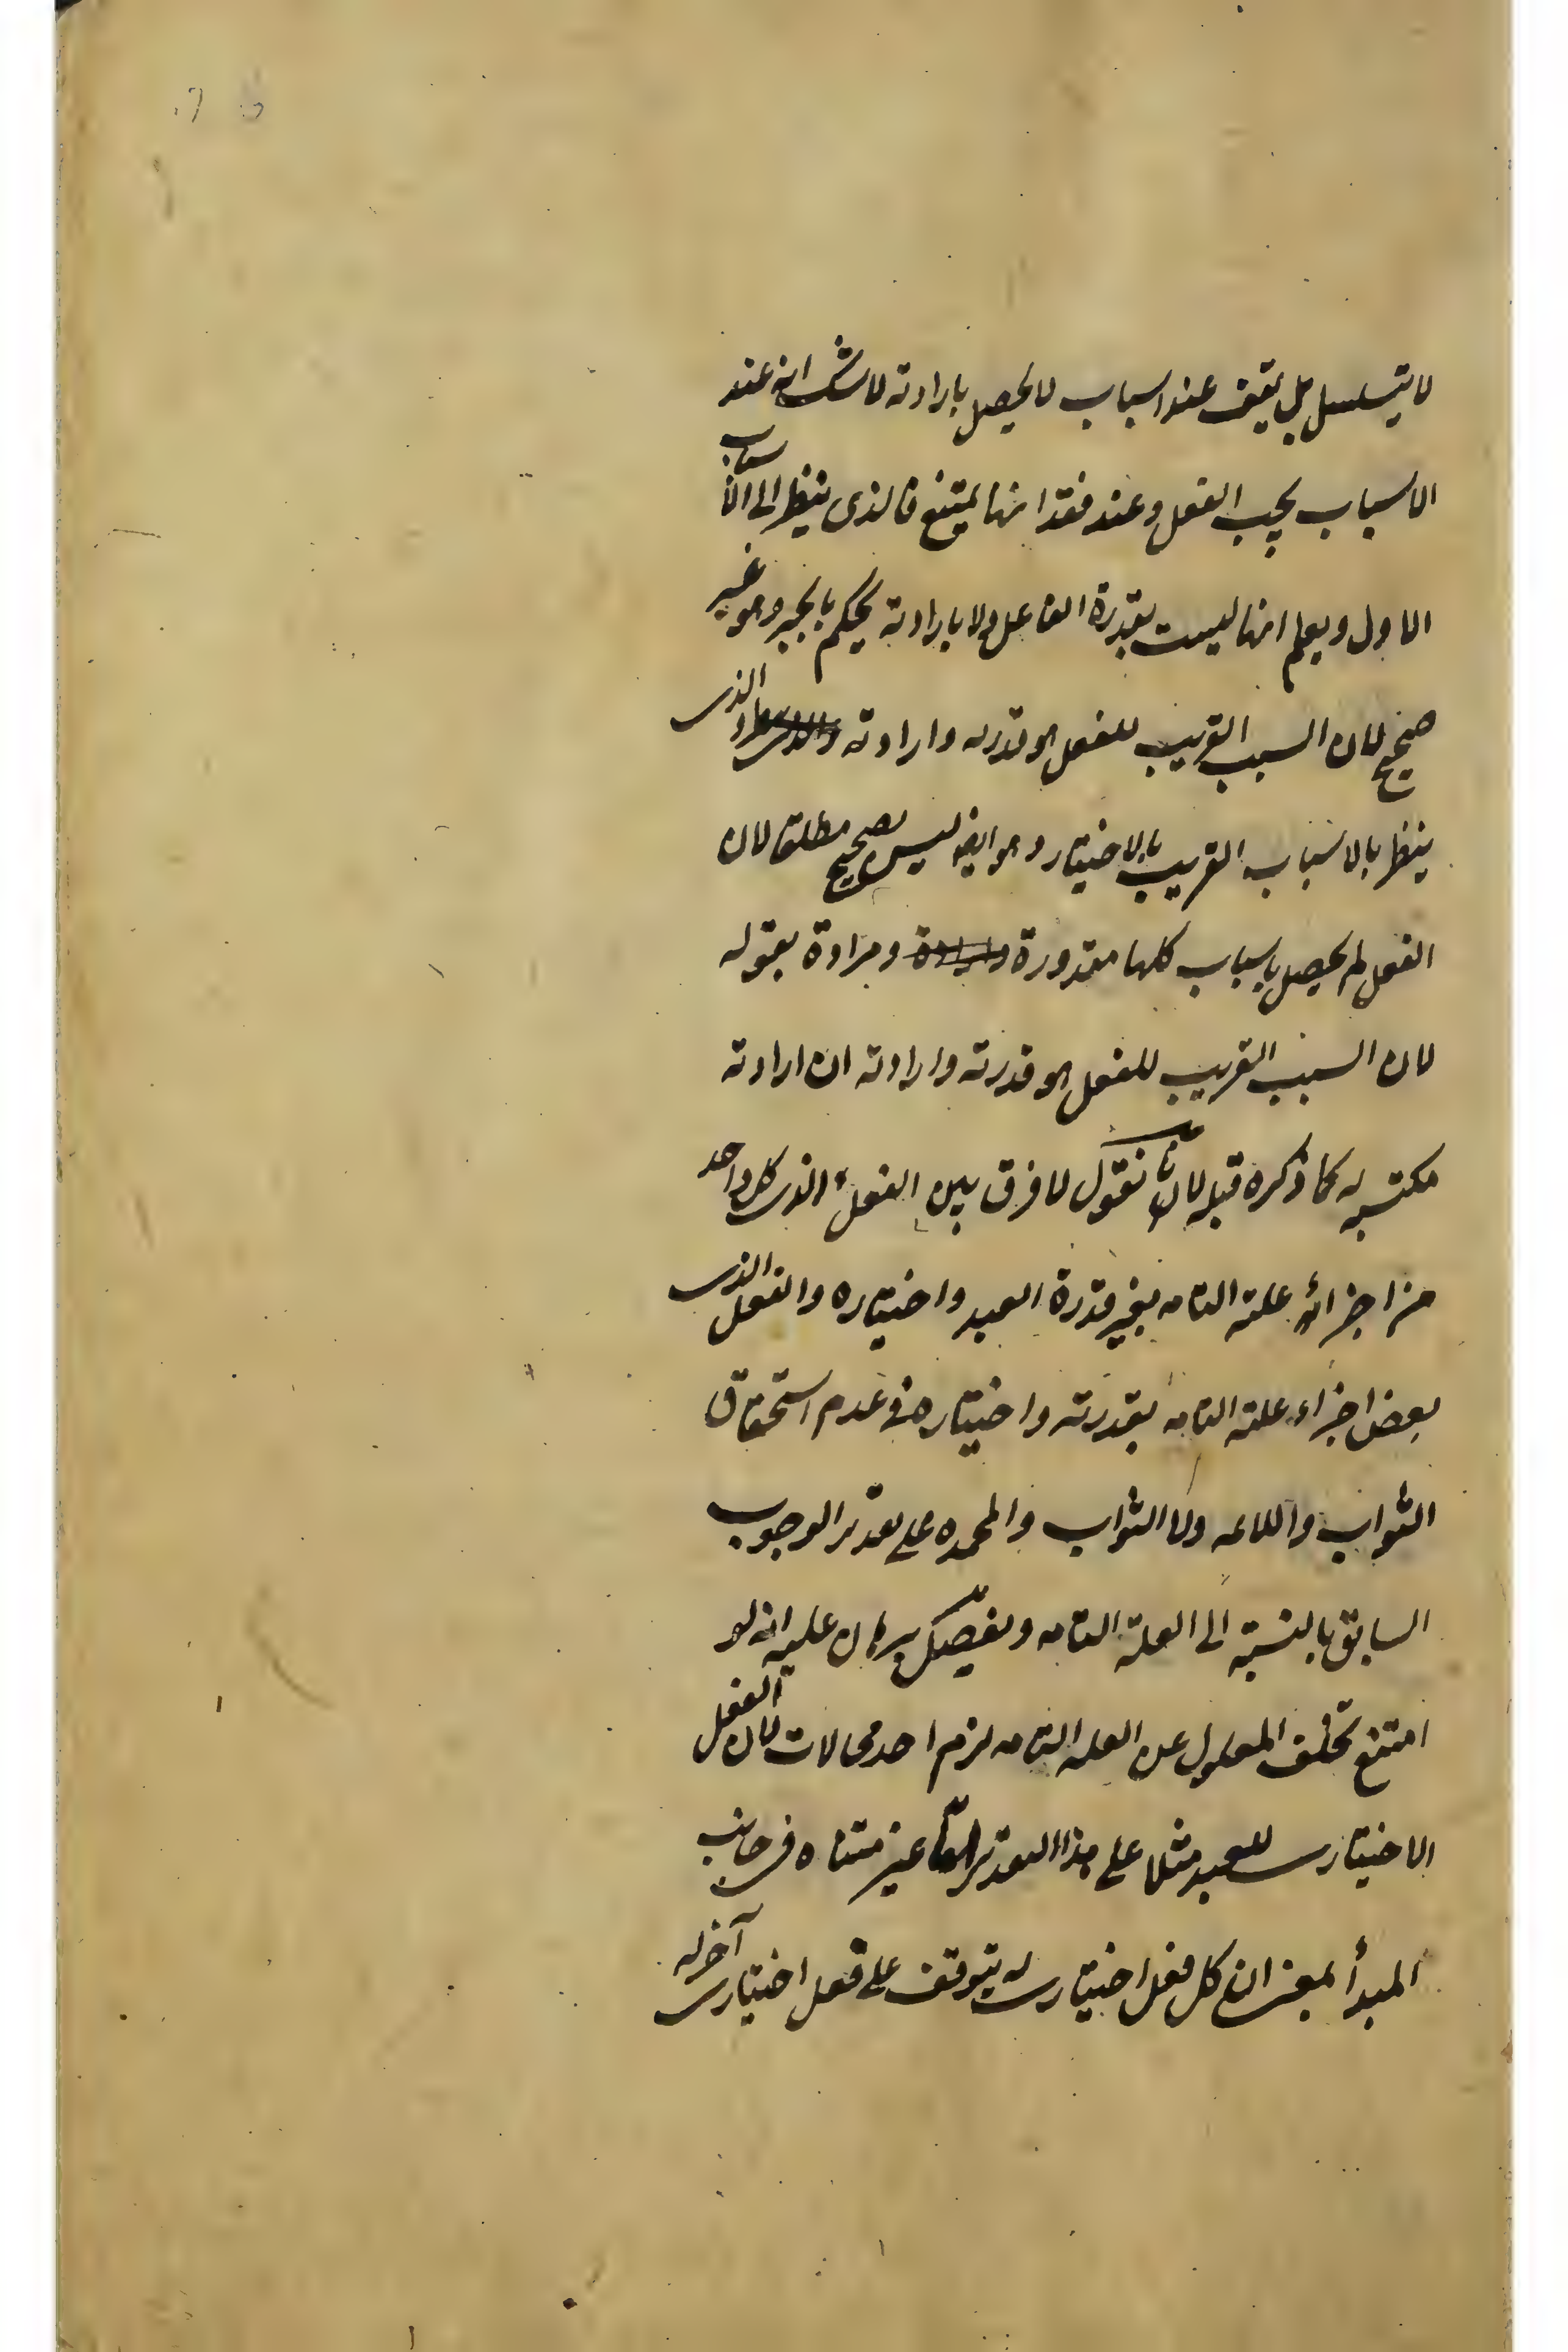 لا يتسلسل بل يقف عند اسباب لا يحصل بارادته لا شك انه عند
الاسباب يجب الفعل وعند فقدانها يمتنع فالذى ينظر الى الاسباب
الاول ويعلم انها ليست بقدرة الفاعل ولا بارادته يحكم بالجبر وهو غير
صحيح لان السبب القريب للفعل هو قدرته وارادته والذى
ينظر بالاسباب القريب بالاختيار وهو ايضا ليس بصحيح مطلقا لان
الفعل لم يحصل باسباب كلها مقدورة ومرادة بقوله
لان السبب القريب للفعل هو قدرته وارادته ان ارادته
مكتسبه كما ذكره قبله لانا نقول لا فرق بين الفعل الذى كل واحد
من اجزائه علته التامه بغير قدرة العبد واختياره والفعل الذى
بعض اجزاء علته التامه بقدرته واختياره فى عدم استحقاق
الثواب واللائمه ولا الثواب والمحمده على تقدير الوجوب
السابق بالنسبة الى العلة التامه وتفصيل برهان عليه انه لو
امتنع تخلف المعلول عن العله التامه لزم احد محالات لان الفعل
الاختيارى للعبد مثلا على هذا التقدير اما غير متناه فى جانب
المبدأ بمعنى ان كل فعل اختيارى له يتوقف على فعل اختيارى آخر له